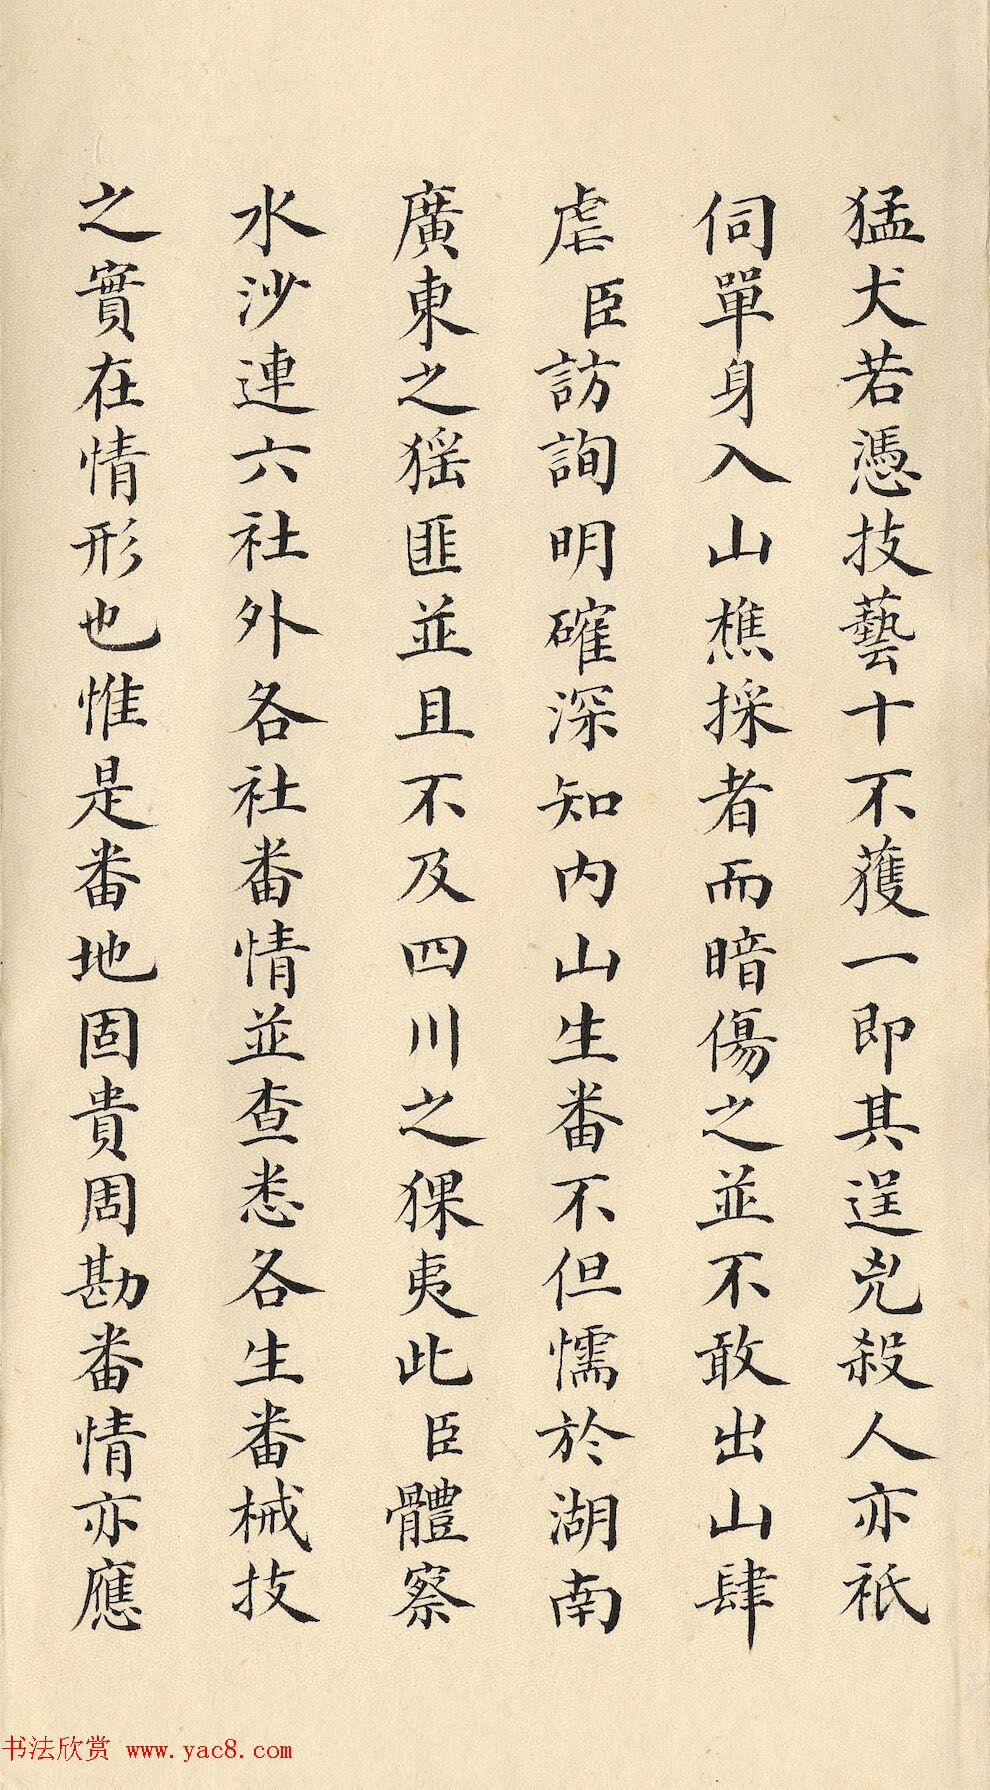 猛犬若憑技藝十不獲一即其逞兇殺人亦祇
伺單身入山樵採者而暗傷之並不敢出山肆
虐臣訪詢明確深知內山生番不但懦於湖南
廣東之猺匪並且不及四川之猓夷此臣體察
水沙連六社外各社番情並查悉各生番械技
之實在情形也惟是番地固貴周勘番情亦應
书法欣赏 www.yac8.com